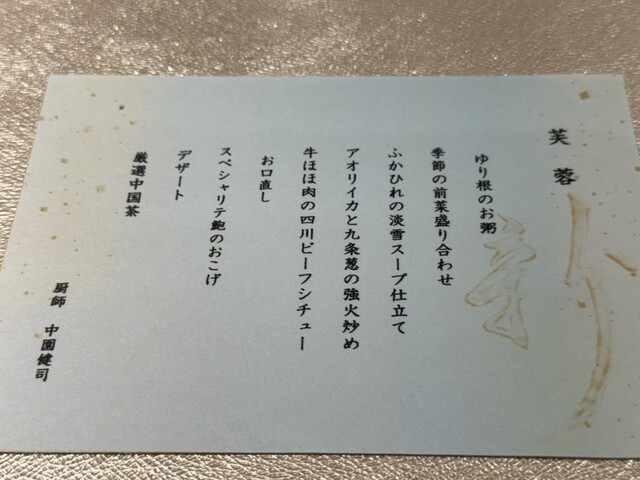 芙蓉
ゆり根のお粥
季節の前菜盛り合わせ
ふかひれの淡雪スープ仕立て
アオリイカと九条葱の強火炒め
牛ほほ肉の四川ビーフシチュー
お口直し
スペシャリテ鮑のおこげ
デザート
厳選中国茶
厨師 中園健司